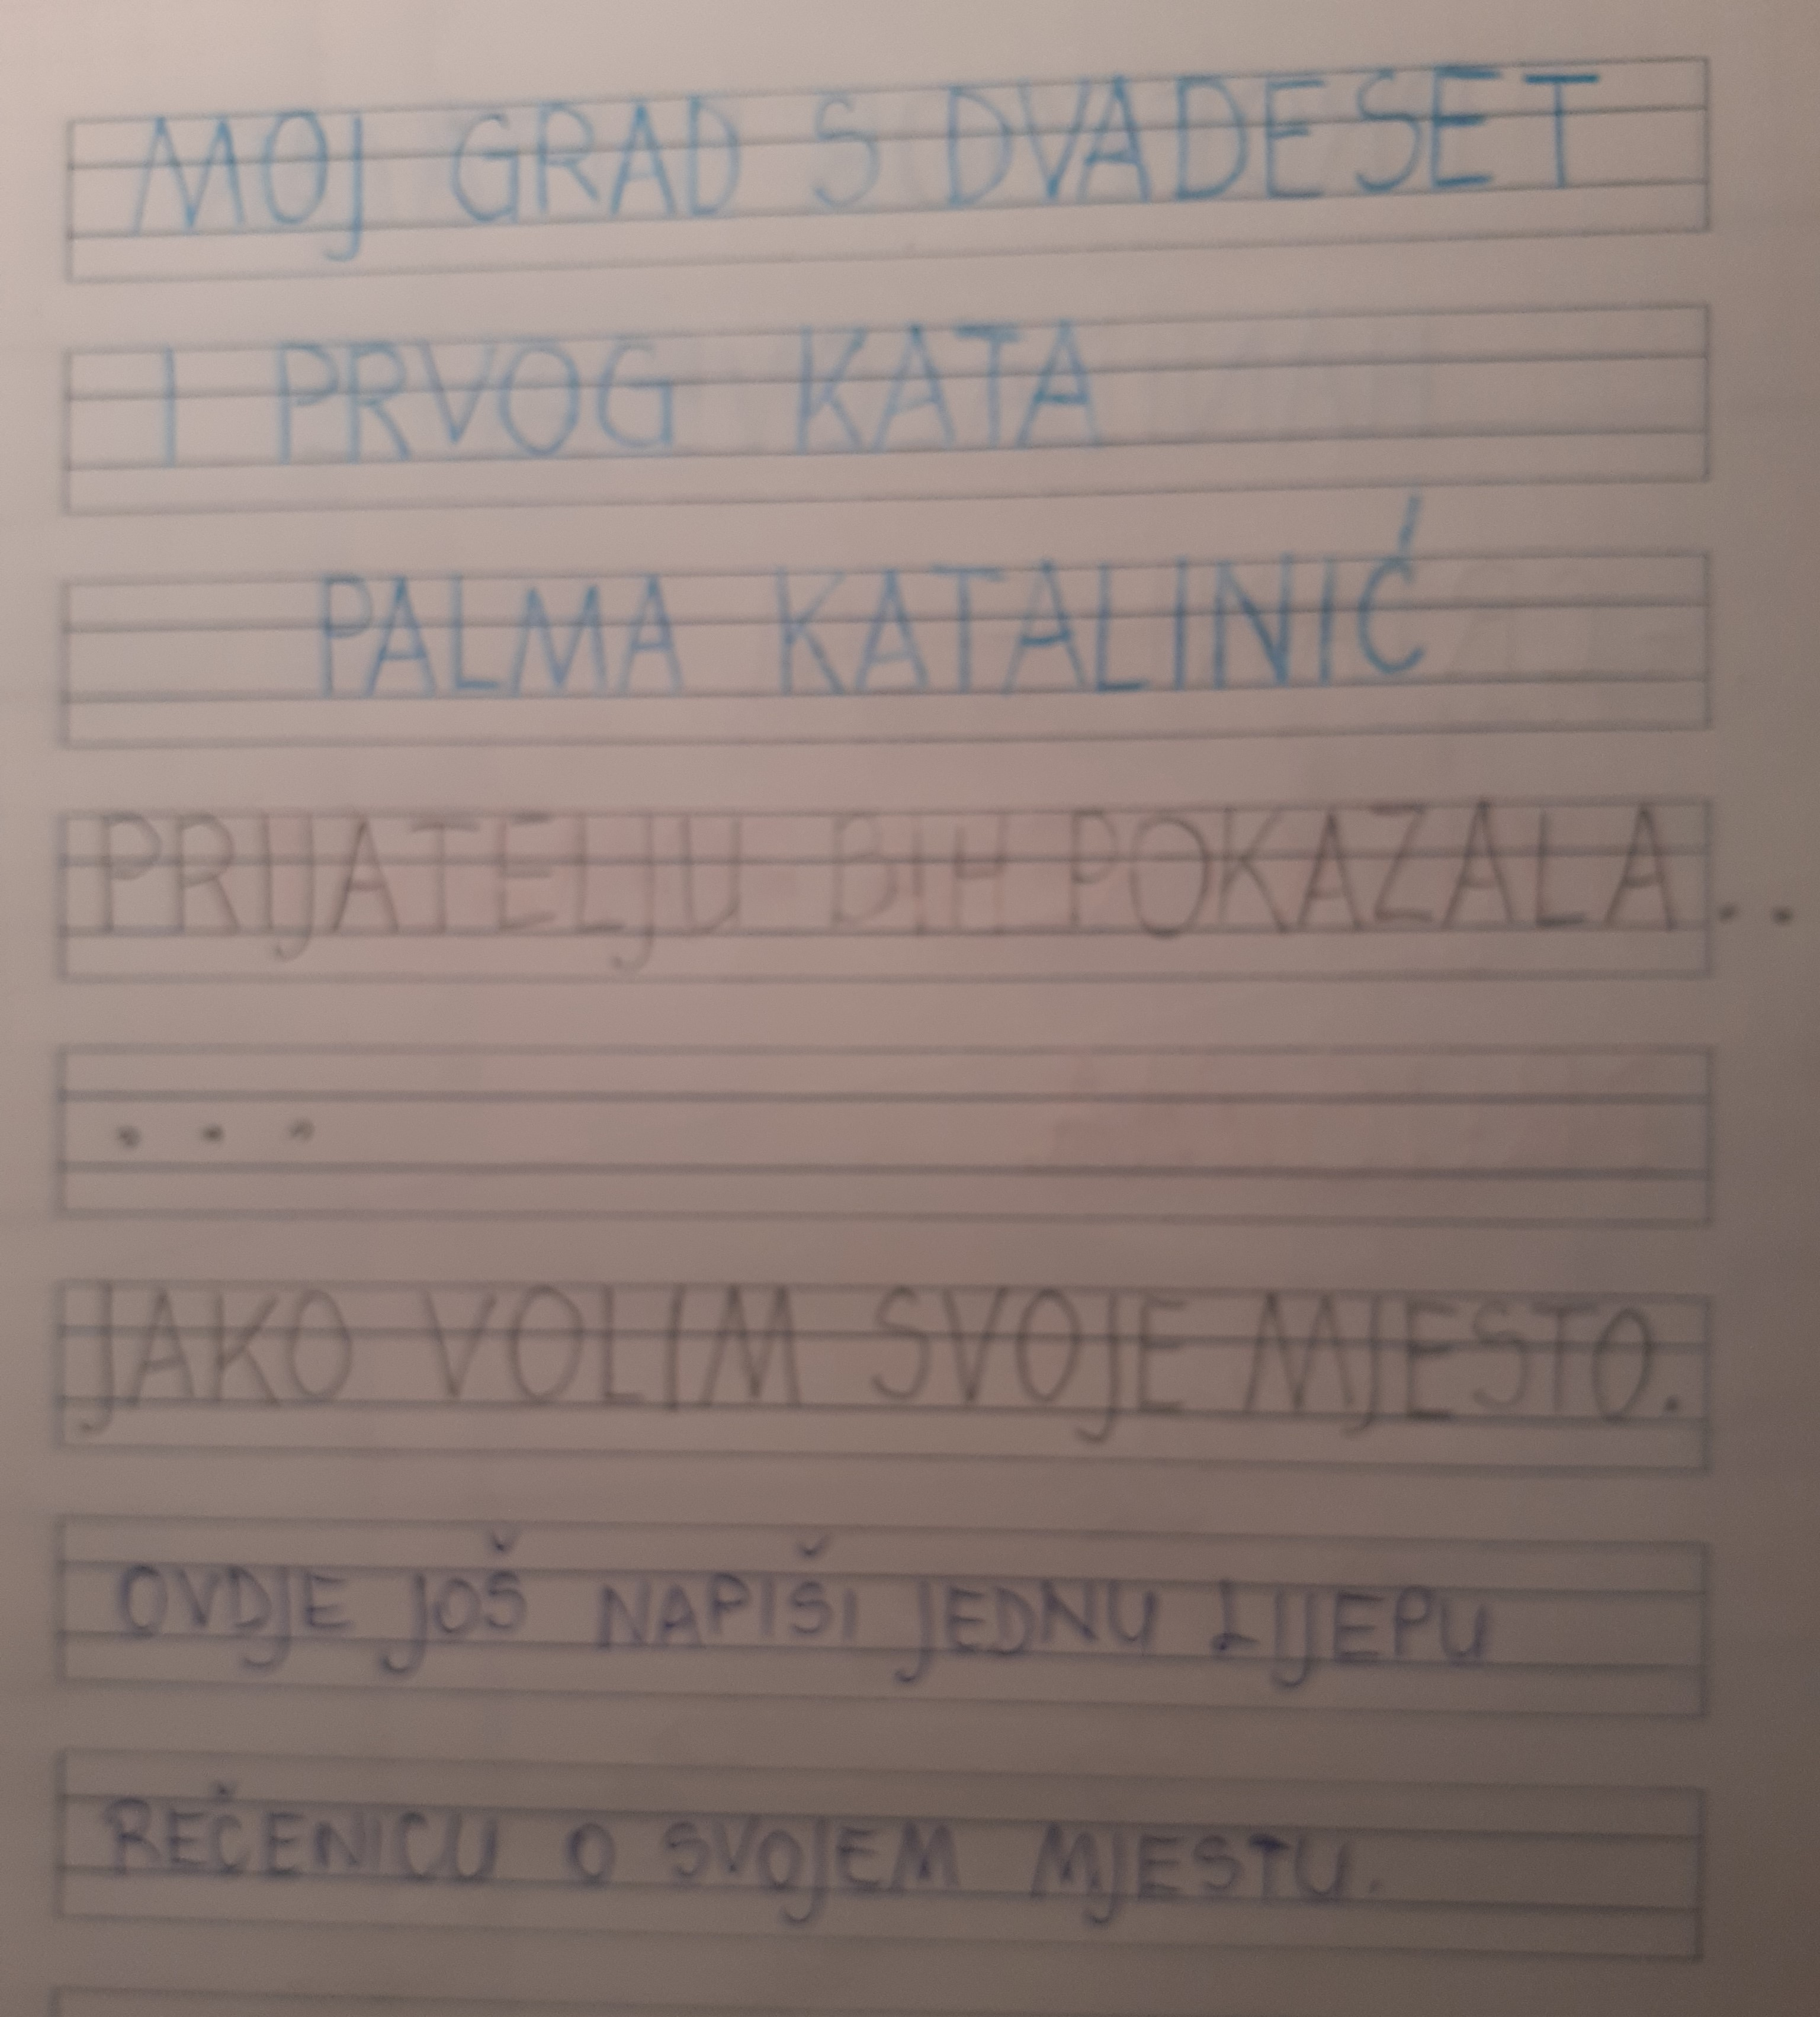 MOJ GRAD S DVADESET
I PRVOG KATA
PALMA KATALINIĆ
PRIJATELJU BIH POKAZALA..
...
JAKO VOLIM SVOJE MJESTO.
OVDJE JOŠ NAPIŠI JEDNU LIJEPU
REČENICU O SVOJEM MJESTU.